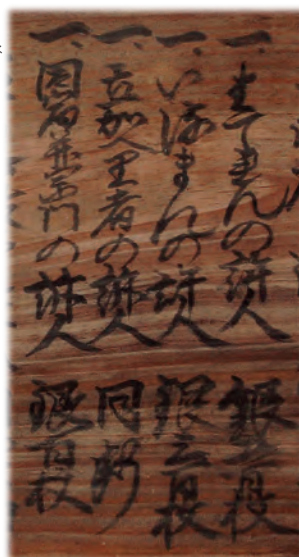 一、はてれんの訴人 銀五百枚
一、いるまんの訴人 銀三百枚
一、立かへり者の訴人 同断
一、同宿并宗門の訴人 銀百枚